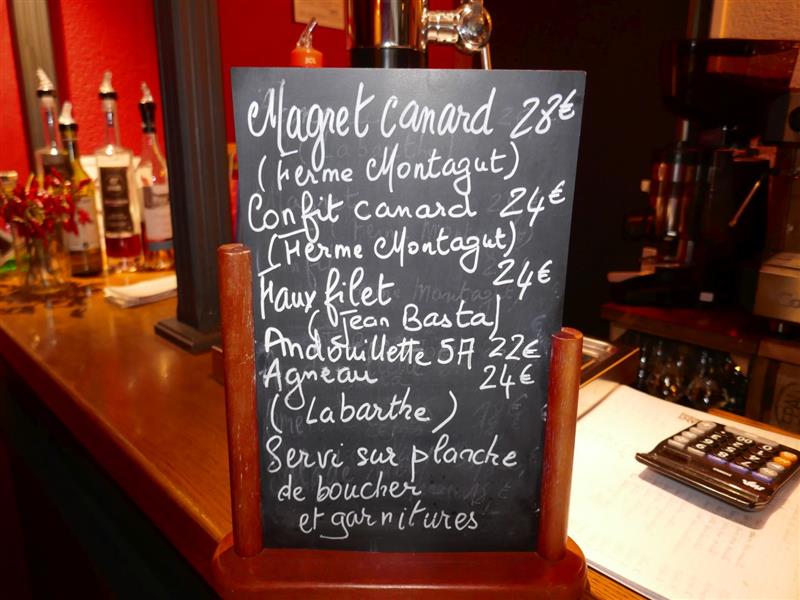 Magret canard 28€
(Ferme Montagut)
Confit canard 24€
(Ferme Montagut)
Faux filet 24€
(Jean Basta)
Andouillette 5A 22€
Agneau 24€
(Labarthe)
Servi sur planche
de boucher
et garnitures